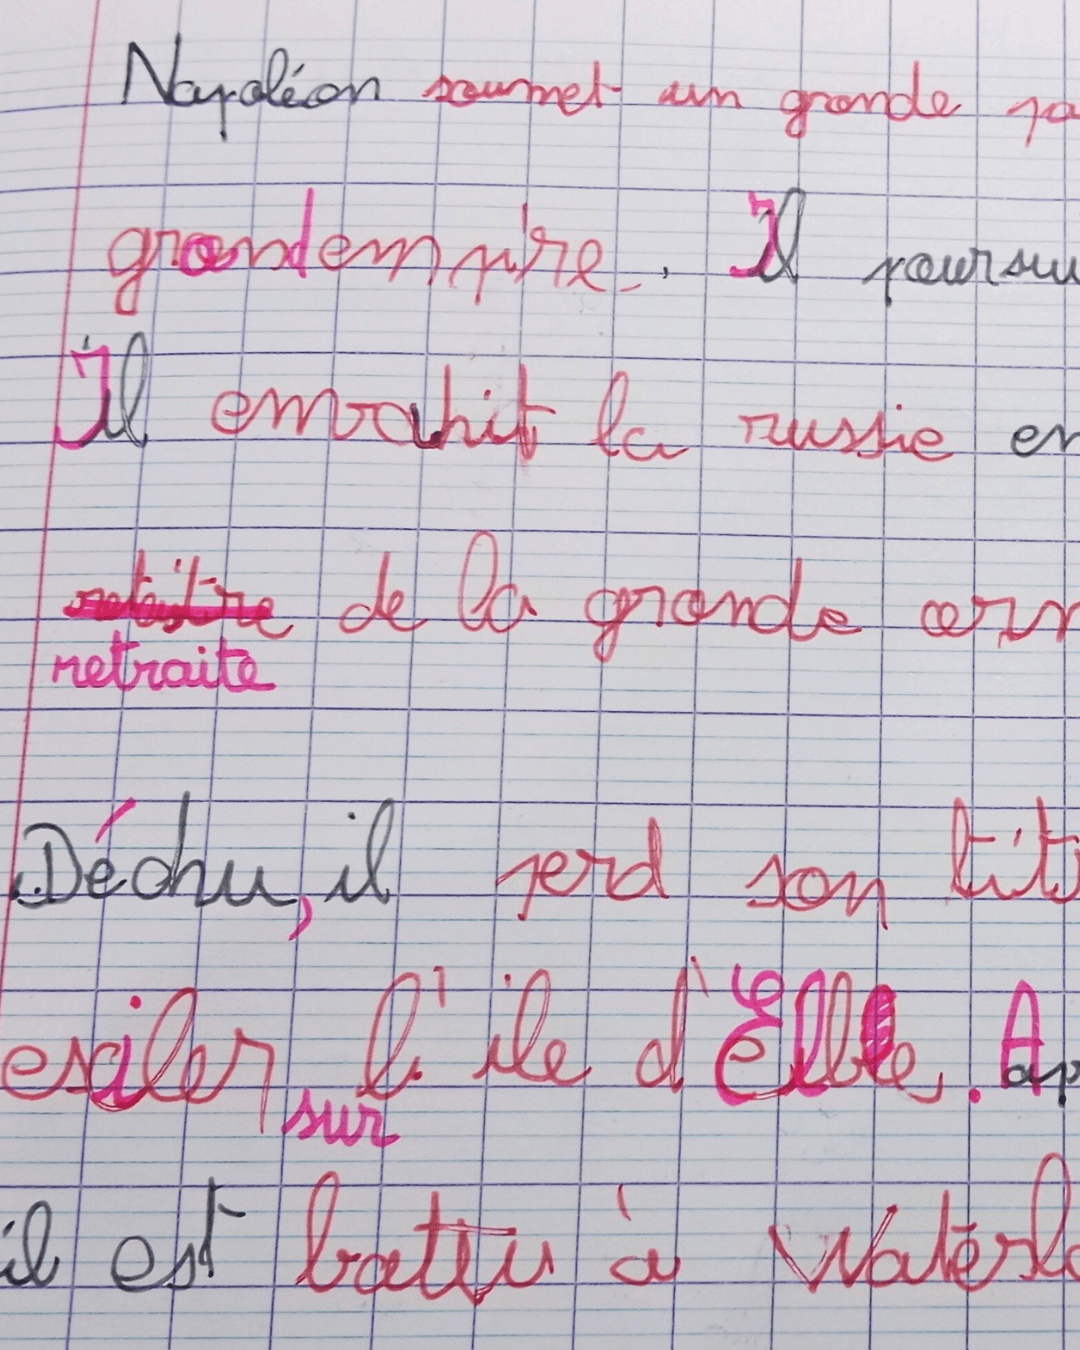 Napoléon soumet un grande pa
grand empire. Il poursu
Il envahit la russie en
de la grande arm
retraite
Déchu, il perd son tit
exiler l'ile d'Elbe. Ap
sur
il est battu à Waterlo